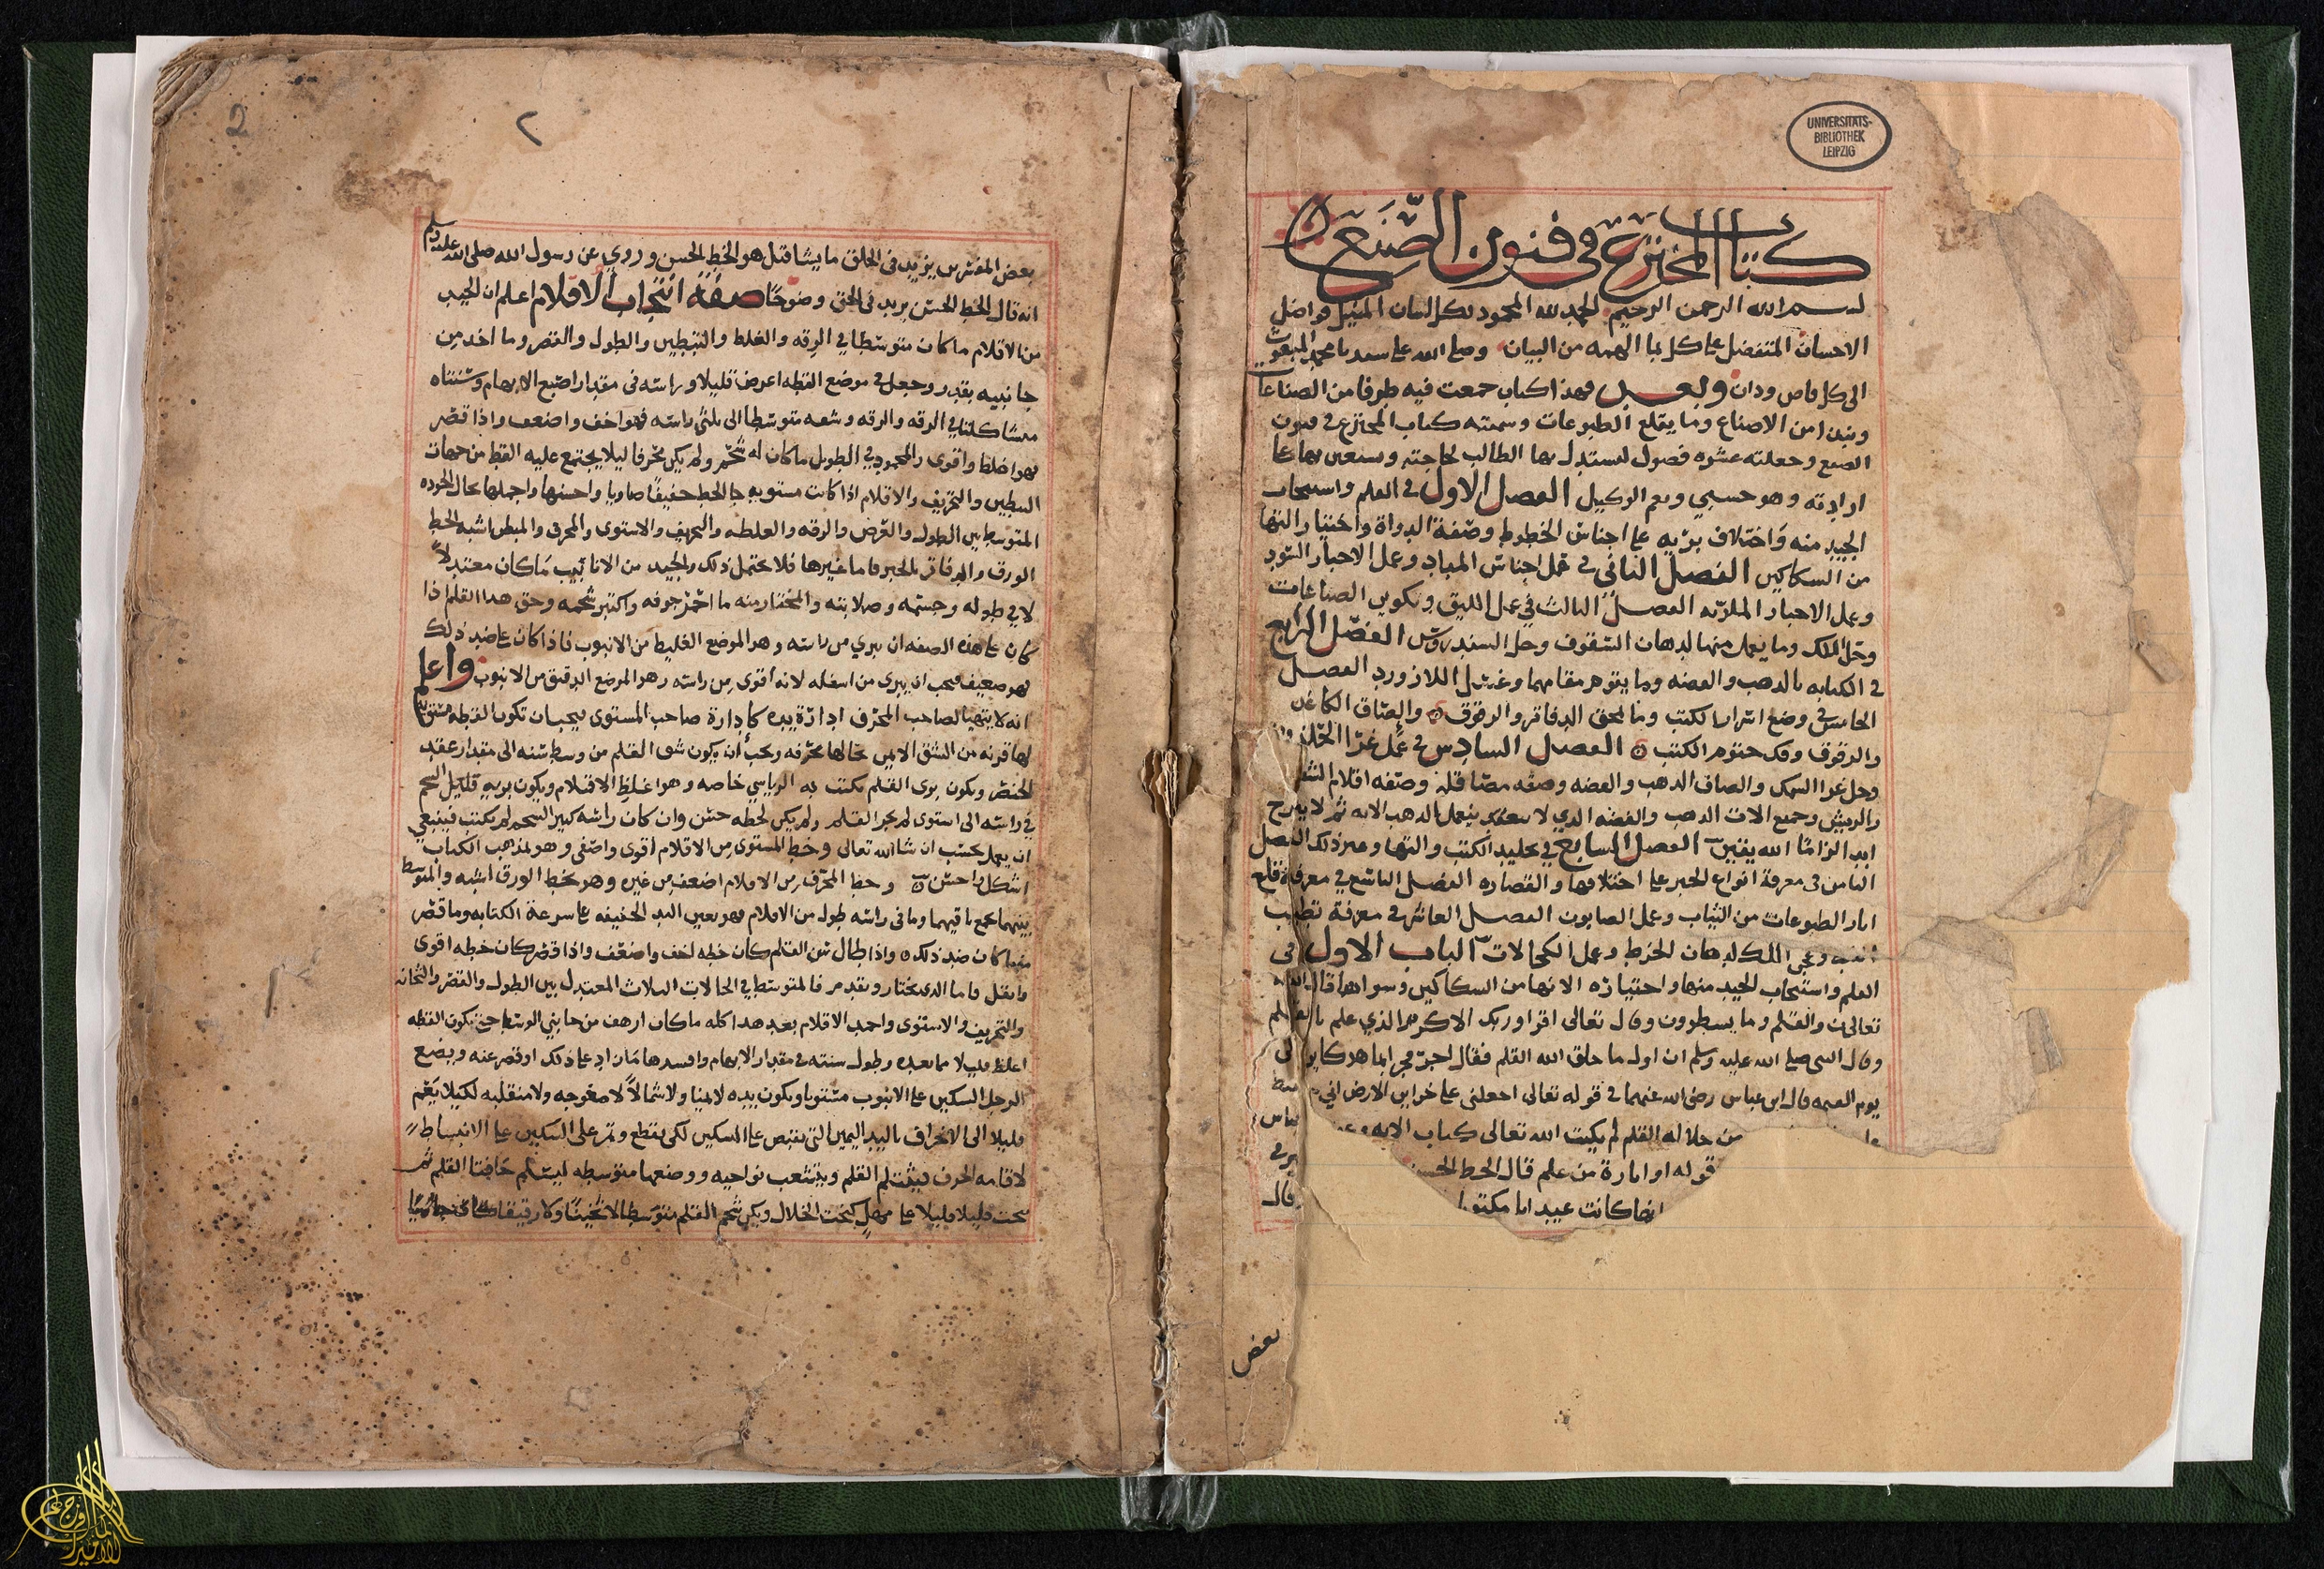 UNIVERSITÄTS-
BIBLIOTHEK
LEIPZIG
كتاب المخترع في فنون الصنع
بسم الله الرحمن الرحيم الحمد لله المحمود بكل لسان المنيل فواضل
الاحسان المتفضل على كل بما الهمه من البيان وصلى الله على سيدنا محمد المبعوث
الى كل قاص ودان وبعد فهذا كتاب جمعت فيه طرفا من الصناعات
ونبذا من الاصناع وما يقلع الطبوعات وسميته كتاب المخترع في فنون
الصنع وجعلته عشرة فصول ليستدل بها الطالب لحاجته ويستعين بها على
ارادته وهو حسبي ونعم الوكيل الفصل الاول في القلم واستنجاب
الجيد منه واختلاف بريه على اجناس الخطوط وصفة الدواة واختيار التها
من السكاكين الفصل الثاني في عمل اجناس المداد وعمل الاحبار السود
وعمل الاحبار الملونه الفصل الثالث في عمل الليق وتكوين الصناعات
وحل الملك وما يعمل منها لدهان السقوف وحل السندروس الفصل الرابع
في الكتابه بالدهب والفضه وما يقوم مقامهما وغسل اللازورد الفصل
الخامس في وضع اسرار الكتب وما يلحق الدفاتر والرقوق والصاق الكاغد
والرقوق وفك ختوم الكتب الفصل السادس في عمل غرا الحلزون
وحل غرا السمك والصاق الدهب والفضه وصفه مصاقله وصفه اقلام الشعر
والريش وجميع الات الدهب والفضه الدي لا
ابدا الفصل السابع في تجليد الكتب والتها وغير ذلك الفصل
الثامن في معرفة انواع الحبر على اختلافها والقصاره الفصل التاسع في معرفة قلع
اثار الطبوعات من الثياب وعمل الصابون الفصل العاشر في معرفة
الملك لدهان الخرط وعمل الكحالات الباب الاول في
القلم واستنجاب الجيد منها واختياره الاتها من السكاكين وسواها قال الله
تعالى ن والقلم وما يسطرون وقال تعالى اقرا وربك الاكرم الذي علم بالقلم
وقال النبي صلى الله عليه وسلم ان اول ما خلق الله القلم فقال اجر فجرا بما هو كاين الى
يوم القيمه قال ابن عباس رضي الله عنهما في قوله تعالى اجعلني على خزاين الارض اني
من جلاله القلم لم يكتب الله تعالى كتاب الا به
قوله او اثارة من علم قال الخط الحسن
كانت عبيد
قال
بعض
2
٢
بعض المفسرين يزيد في الخلق ما يشا قيل هو الخط الحسن وروي عن رسول الله صلى الله عليه وسلم
انه قال الخط الحسن يزيد في الحق وضوحا صفة انتجاب الاقلام اعلم ان الجيد
من الاقلام ما كان متوسطا في الرقه والغلظ والتبطين والطول والقصر وما اخد من
جانبيه بقدر وجعل في موضع القطه اعرض قليلا وراسه في مقدار اصبع الابهام وسنتاه
متشاكلتا في الرقه والرقه وشقه متوسطا الى ثلثي راسه فهو اخف واضعف واذا قصر
فهو اغلظ واقوى والمحمود في الطويل ما كان له شحم ولم يكن محرفا ليلا يجتمع عليه القط من جهات
التبطين والتحريف والاقلام اذا كانت مستويه جا الخط خفيفا صاويا واحسنها واجملها بحال الجوده
المتوسط بين الطول والعرض والرقه والغلظه والتحريف والاستوى والمحرف والمبطن اشبه الخط
الورق والدفاتر بالحبر فاما غيرها فلا يحتمل ذلك والجيد من الانابيب ما كان معتدلا
لا في طوله وجسمه وصلابته والمختار منه ما اصفر جوفه واكتنز شحمه وحق هدا القلم اذا
كان على هذه الصفه ان يبري من راسه وهو الموضع الغليظ من الانبوب فاذا كان على ضد ذلك
فهو ضعيف فيجب ان يبرى من اسفله لانه أقوى من راسه وهو الموضع الدقيق من الانبوب واعلم
انه لا يتهيا لصاحب المحرف ادارة يده كادارة صاحب المستوى فيجب ان تكون القطه مستويه
لها قرنه من الشق الايمن بحالها محرفه ويجب أن يكون شق القلم من وسط سنه الى مقدار عقد
الخنصر ويكون برى القلم يكتب به الرياسي خاصه وهو اغلظ الاقلام ويكون بريه قليل الشحم
في راسه الى استوى لم يجر القلم ولم يكن لخطه حسن وان كان راسه كبير الشحم لم يكتب فينبغي
ان يعمل بحسب ان شا الله تعالى وخط المستوى من الاقلام أقوى واصفى وهو لمذهب الكتاب
اشكل واحسن وخط المحرف من الاقلام اضعف من غيره وهو بخط الورق اشبه والمتوسط
بينهما يجمع ما فيهما وما في راسه طول من الاقلام فهو يعين اليد الخفيفه على سرعة الكتابه وما قصر
منها كان ضد ذلك واذا طال سن القلم كان خطه اخف واضعف واذا قصر كان خطه اقوى
واثقل فاما الدي يختار ويقدم فالمتوسط في الحالات الثلاث المعتدل بين الطول والقصر والثخانه
والتحريف والاستوى واحمد الاقلام بعد هدا كله ما كان ارهف من جانبي الوسط حتى تكون القطه
اغلظ قليلا مما بعده وطول سنته في مقدار الابهام وافسدها ما زاد على ذلك او قصر عنه ويضع
الرجل السكين على الانبوب مستويا ويكون بيده لا يمينا ولا شمالا لا معوجه ولا منقلبه لكيلا يغم
قليلا الى الانحراف باليد اليمين التي تقبض على السكين لكي يقطع وتمر على السكين على الانبساط
لاقامه الحرف فيثلم القلم ويتشعب نواحيه ووضعها متوسطه ليسلم حافتا القلم ثم
تنحت قليلا قليلا على مهل كنحت الخلال ويكن شحم القلم متوسطا لا ثخينا ولا رقيقا